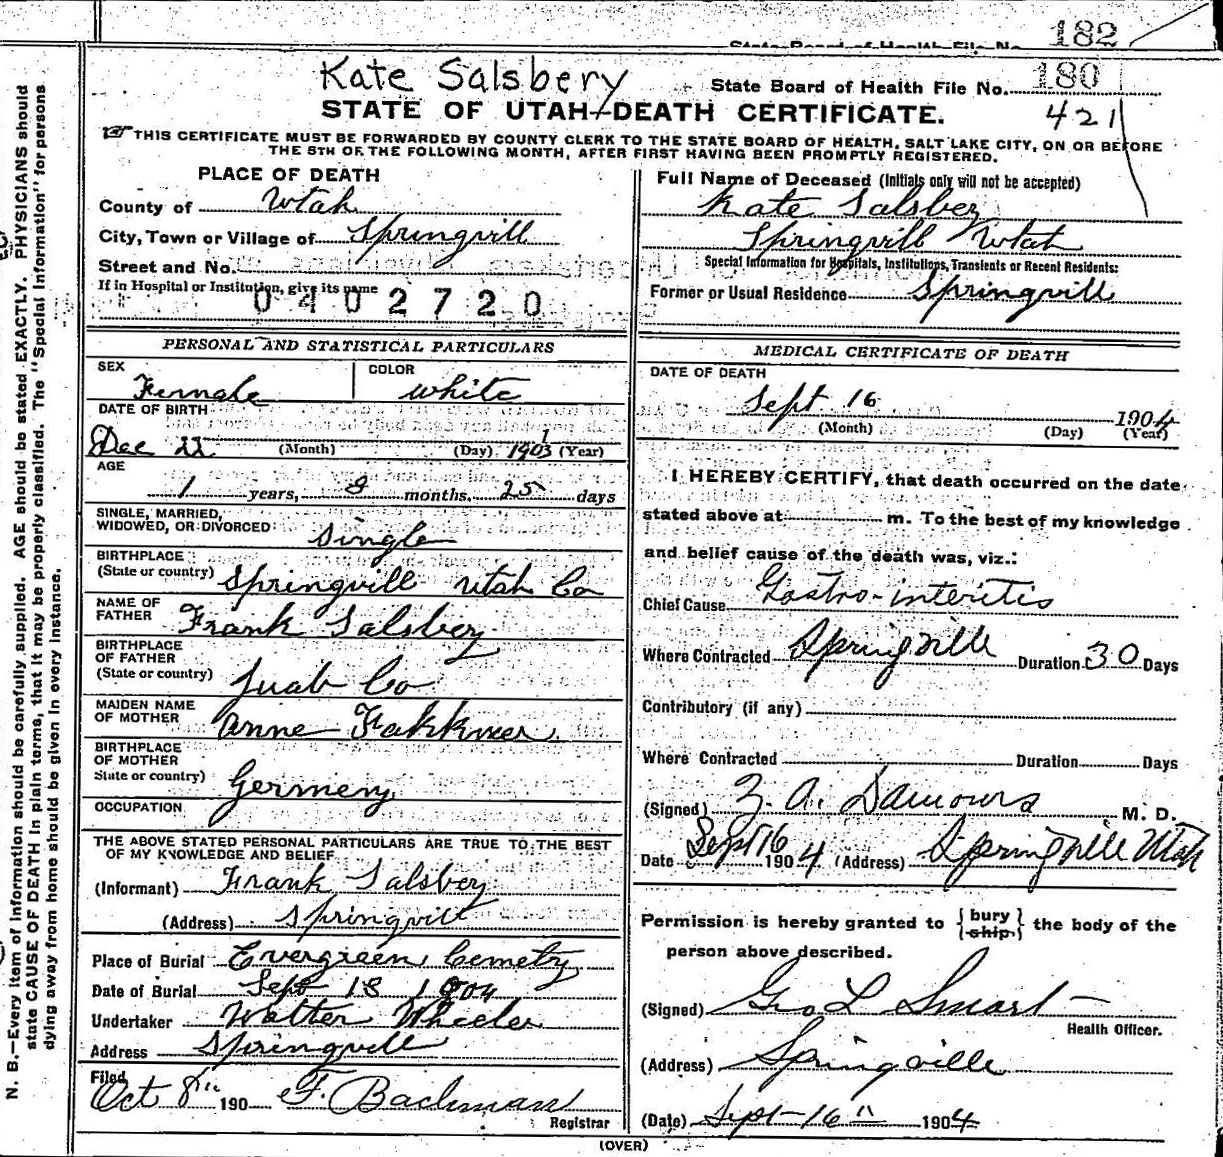 State Board of Health File No. 182
Kate Salsbery
State Board of Health File No. 180
STATE OF UTAH—DEATH CERTIFICATE.
421
THIS CERTIFICATE MUST BE FORWARDED BY COUNTY CLERK TO THE STATE BOARD OF HEALTH, SALT LAKE CITY, ON OR BEFORE
THE 5TH OF THE FOLLOWING MONTH, AFTER FIRST HAVING BEEN PROMPTLY REGISTERED.
PLACE OF DEATH
County of Utah
City, Town or Village of Springvill
Street and No.
If in Hospital or Institution, give its name
0402720
Full Name of Deceased (Initials only will not be accepted)
Kate Salsbey
Springvill Utah
Special Information for Hospitals, Institutions, Transients or Recent Residents:
Former or Usual Residence Springvill
PERSONAL AND STATISTICAL PARTICULARS
SEX Female
COLOR white
DATE OF BIRTH
Dec 22 (Month) (Day) 1903 (Year)
AGE
1 years, 8 months, 25 days
SINGLE, MARRIED,
WIDOWED, OR DIVORCED Single
BIRTHPLACE
(State or country) Springvill Utah Co
NAME OF
FATHER Frank Salsbey
BIRTHPLACE
OF FATHER
(State or country) Juab Co
MAIDEN NAME
OF MOTHER Anne
BIRTHPLACE
OF MOTHER
State or country) Germeny
OCCUPATION
THE ABOVE STATED PERSONAL PARTICULARS ARE TRUE TO THE BEST
OF MY KNOWLEDGE AND BELIEF
(Informant) Frank Salsbey
(Address) Springvill
Place of Burial Evergreen Cemetry
Date of Burial Sept 18 1904
Undertaker Walter Wheeler
Address Springvill
Filed
Oct 8th 190 F. Bachman
Registrar
MEDICAL CERTIFICATE OF DEATH
DATE OF DEATH
Sept 16 1904
(Month) (Day) (Year)
I HEREBY CERTIFY, that death occurred on the date
stated above at m. To the best of my knowledge
and belief cause of the death was, viz.:
Chief Cause Gastro-interitis
Where Contracted Springville Duration 30 Days
Contributory (if any)
Where Contracted Duration Days
(Signed) M. D.
Date Sept 16 1904 (Address) Springville Utah
Permission is hereby granted to {bury
ship} the body of the
person above described.
(Signed) Geo L Smart
Health Officer.
(Address) Springville
(Date) Sept 16" 1904
(OVER)
N. B.—Every item of information should be carefully supplied. AGE should be stated EXACTLY. PHYSICIANS should
state CAUSE OF DEATH in plain terms, that it may be properly classified. The "Special Information" for persons
dying away from home should be given in every instance.